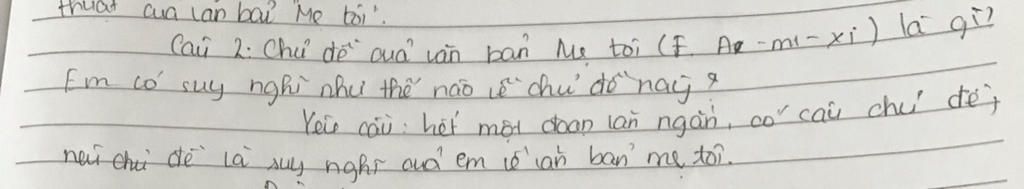 thuật của văn bản Mẹ tôi".
Câu 2: Chủ đề quả văn bản Mẹ tôi (E. A-mi-xi) là gì?
Em có suy nghĩ như thế nào về chủ đề này?
Yêu cầu: hết một đoạn văn ngắn, có câu chủ đề,
nêu chủ đề là suy nghĩ quả em về văn bản mẹ tôi.